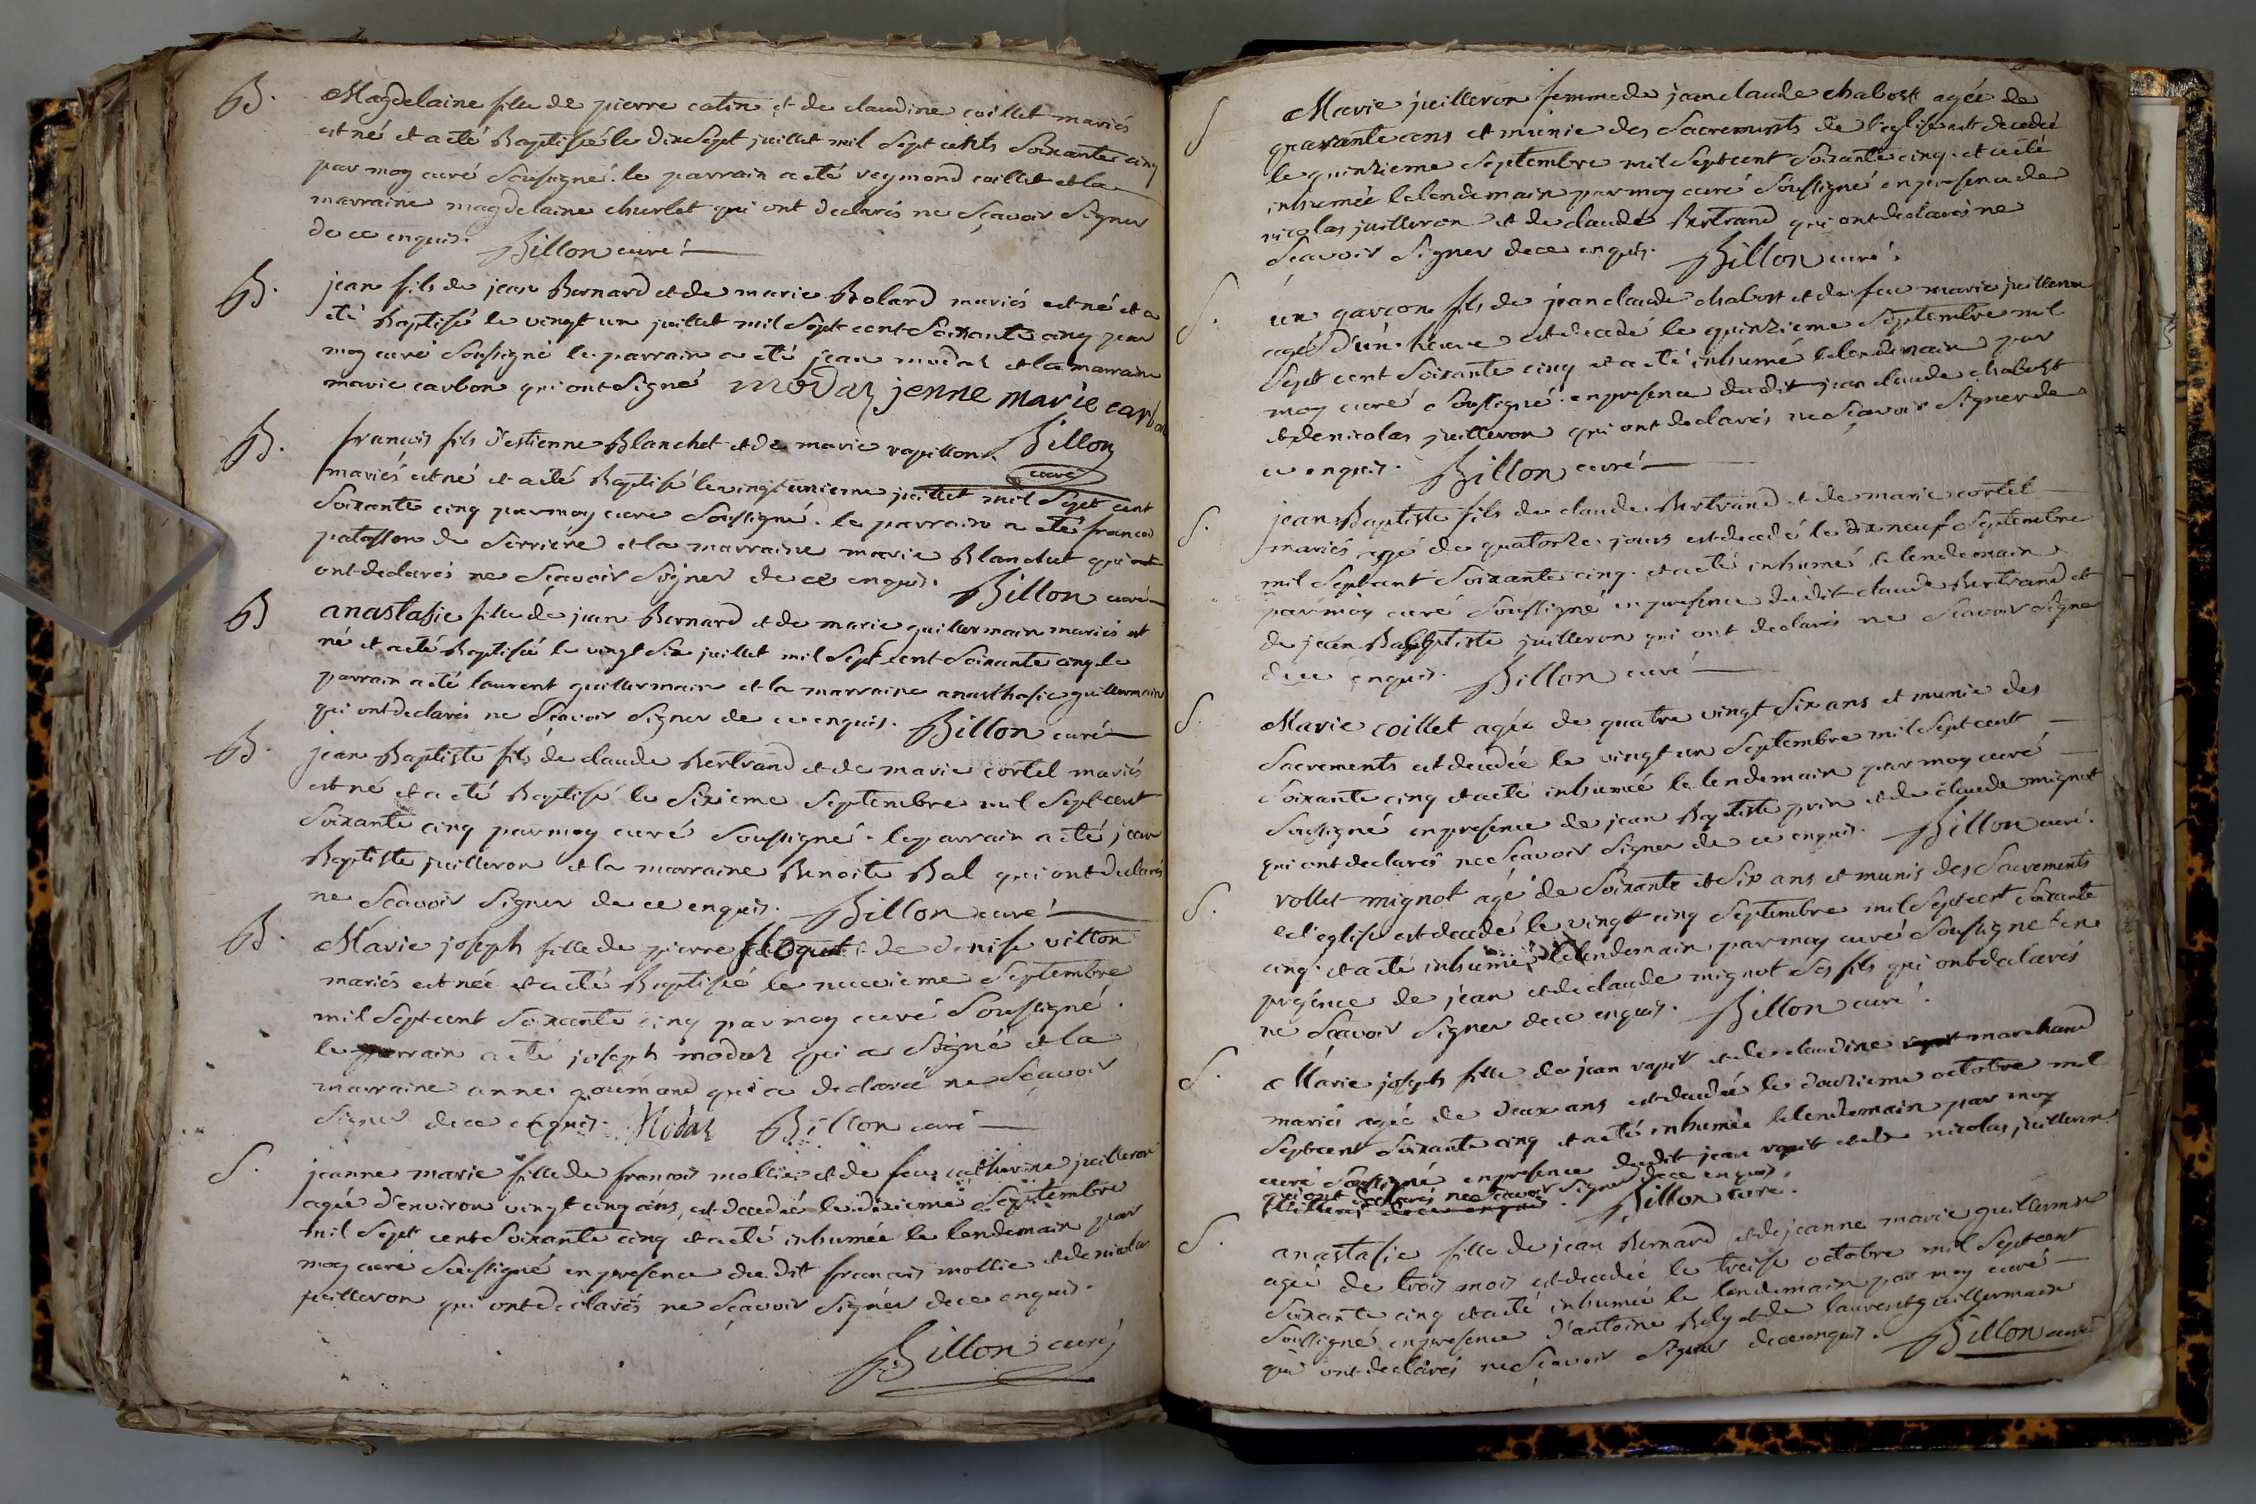 B. Magdelaine fille de pierre catin et de claudine coillet mariés
est né et a eté Baptisée le dix sept juillet mil sept cents soixante cinq
par moy curé soussigné. le parrain a eté reymond coillet et la
marraine magdelaine churlet qui ont declarés ne sçavoir signer
de ce enquis. Billon curé
B. jean fils de jean Bernard et de marie Bolard mariés est né et a
eté Baptisé le vingt un juillet mil sept cent soixante cinq par
moy curé soussigné le parrain a eté jean modaz et la marraine
marie carbon qui ont signé modaz jenne marie carbon
B. francois fils d'estienne Blanchet et de marie rapillon. Billon
curé
mariés est né et a eté Baptisé le vingt unieme juillet mil sept cent
soixante cinq par moy curé soussigné. le parrain a eté francois
patasson de serriere et la marraine marie Blanchet qui
ont declarés ne sçavoir signer de ce enquis. Billon curé
B anastasie fille de jean Bernard et de marie guillermain mariés est
né et a eté Baptisée le vingt six juillet mil sept cent soixante cinq le
parrain a eté laurent guillermain et la marraine anasthasie guillermain
qui ont declarés ne sçavoir signer de ce enquis. Billon curé
B. jean Baptiste fils de claude Bertrand et de marie cortel mariés
est né et a eté Baptisé le sixieme septembre mil sept cent
soixante cinq par moy curé soussigné. le parrain a eté jean
Baptiste juilleron et la marraine Benoite Bal qui ont declarés
ne sçavoir signer de ce enquis. Billon curé
B. Marie joseph fille de pierre floquet de denise vitton
mariés est née et a eté Baptisée le neuvieme septembre
mil sept cent soixante cinq par moy curé soussigné.
le parrain a eté joseph modaz qui a signé et la
marraine anne goumand qui a declaré ne sçavoir
signer de ce enquis. Modaz Billon curé
S. jeanne marie fille de francois mollie et de feue catherine juilleron
agée d'environ vingt cinq ans, est decedée le dixieme septembre
mil sept cent soixante cinq et a eté inhumée le lendemain par
moy curé soussigné en presence dudit francois mollie et de nicolas
juilleron qui ont declarés ne sçavoir signer de ce enquis.
Billon curé
S Marie juilleron femme de jean claude chabost agée de
quarante ans et munie des sacrements de l'eglise est decedée
le quinzieme septembre mil sept cent soixante cinq. et a eté
inhumée le lendemain par moy curé soussigné en presence de
nicolas juilleron et de claude Bertrand qui ont declarés ne
sçavoir signer de ce enquis. Billon curé.
S. un garçon fils de jean claude chabost et de feue marie juilleron
agé d'un heure est decedé le quinzieme septembre mil
sept cent soixante cinq et a eté inhumé le lendemain par
moy curé soussigné en presence dudit jean claude chabost
et de nicolas juilleron qui ont declarés ne sçavoir signer de
ce enquis. Billon curé
S. jean Baptiste fils de claude Bertrand et de marie cortel
mariés agé de quatorze jours est decedé le dix neuf septembre
mil sept cent soixante cinq. et a eté inhumé le lendemain
par moy curé soussigné en presence dudit claude Bertrand et
de jean Baptiste juilleron qui ont declarés ne sçavoir signer
de ce enquis. Billon curé
S. Marie coillet agée de quatre vingt six ans et munie des
sacrements est decedée le vingt un septembre mil sept cent
soixante cinq et a eté inhumée le lendemain par moy curé
soussigné en presence de jean Baptiste prin et de claude mignot
qui ont declarés ne sçavoir signer de ce enquis. Billon curé.
S. rollet mignot agé de soixante et six ans et munis des sacrements
de l'eglise est decedé le vingt cinq septembre mil sept cent soixante
cinq. et a eté inhumé le lendemain par moy curé soussigné en
presence de jean et de claude mignot ses fils qui ont declarés
ne sçavoir signer de ce enquis. Billon curé.
S. Marie joseph fille de jean rapit et de claudine marchand
mariés agée de deux ans est decedée le douzieme octobre mil
sept cent soixante cinq et a eté inhumée le lendemain par moy
curé soussigné en presence dudit jean rapit et de nicolas juilleron
qui ont declarés ne sçavoir signer de ce enquis.
Billon curé.
S. anastasie fille de jean Bernard et de jeanne marie guillermin
agée de trois mois est decedée le treise octobre mil sept cent
soixante cinq et a eté inhumée le lendemain par moy curé
soussigné en presence d'antoine Bely et de laurent guillermain
qui ont declarés ne sçavoir signer de ce enquis. Billon curé